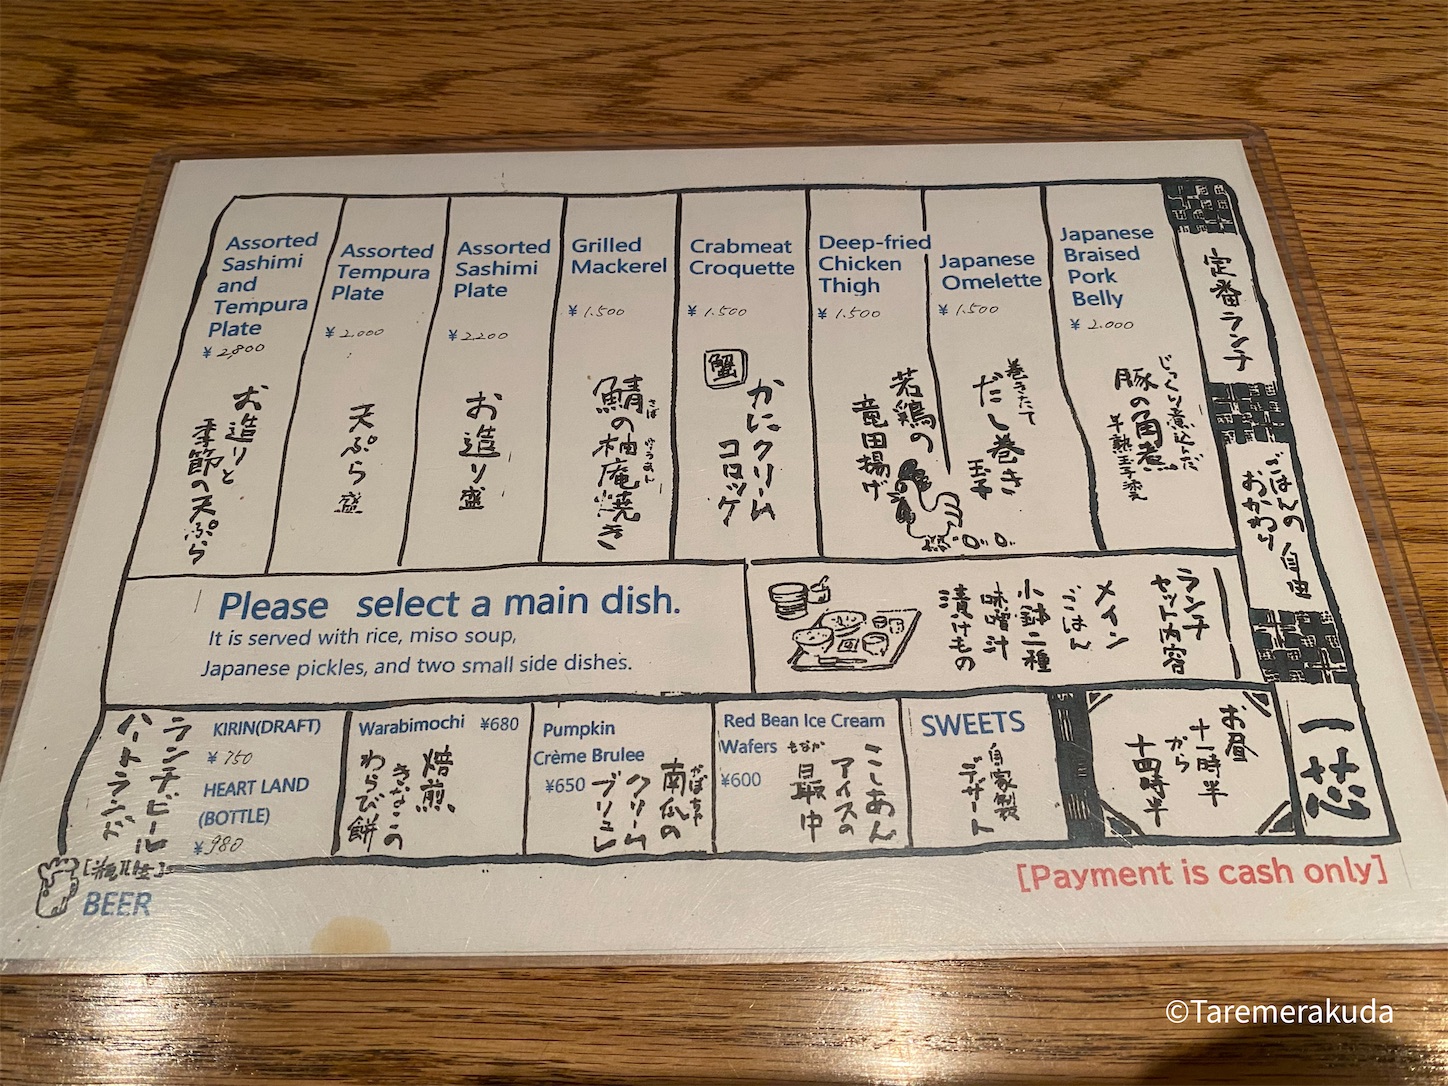 定番ランチ
ごはんの
おかわり
自由
一芯
Japanese
Braised
Pork
Belly
¥2.000
じっくり煮込んだ
豚の角煮
半熟玉子添え
Japanese
Omelette
¥1.500
巻きたて
だし巻き
玉子
Deep-fried
Chicken
Thigh
¥1.500
若鶏の
竜田揚げ
Crabmeat
Croquette
¥1.500
蟹
かにクリーム
コロッケ
Grilled
Mackerel
¥1.500
鯖の柚庵焼き
さば
ゆうあん
Assorted
Sashimi
Plate
¥2200
お造り盛
Assorted
Tempura
Plate
¥2.000
天ぷら盛
Assorted
Sashimi
and
Tempura
Plate
¥2,800
お造りと
季節の天ぷら
Please select a main dish.
It is served with rice, miso soup,
Japanese pickles, and two small side dishes.
ランチ
セット内容
メイン
ごはん
小鉢二種
味噌汁
漬けもの
お昼
十一時半
から
十四時半
SWEETS
自家製
デザート
Red Bean Ice Cream
Wafers
¥600
こしあん
アイスの
最中
もなか
Pumpkin
Crème Brulee
¥650
南瓜の
かぼちゃ
クリーム
ブリュレ
Warabimochi ¥680
焙煎
きなこの
わらび餅
KIRIN(DRAFT)
¥750
HEART LAND
(BOTTLE)
¥980
ランチビール
ハートランド
BEER
[Payment is cash only]
©Taremerakuda